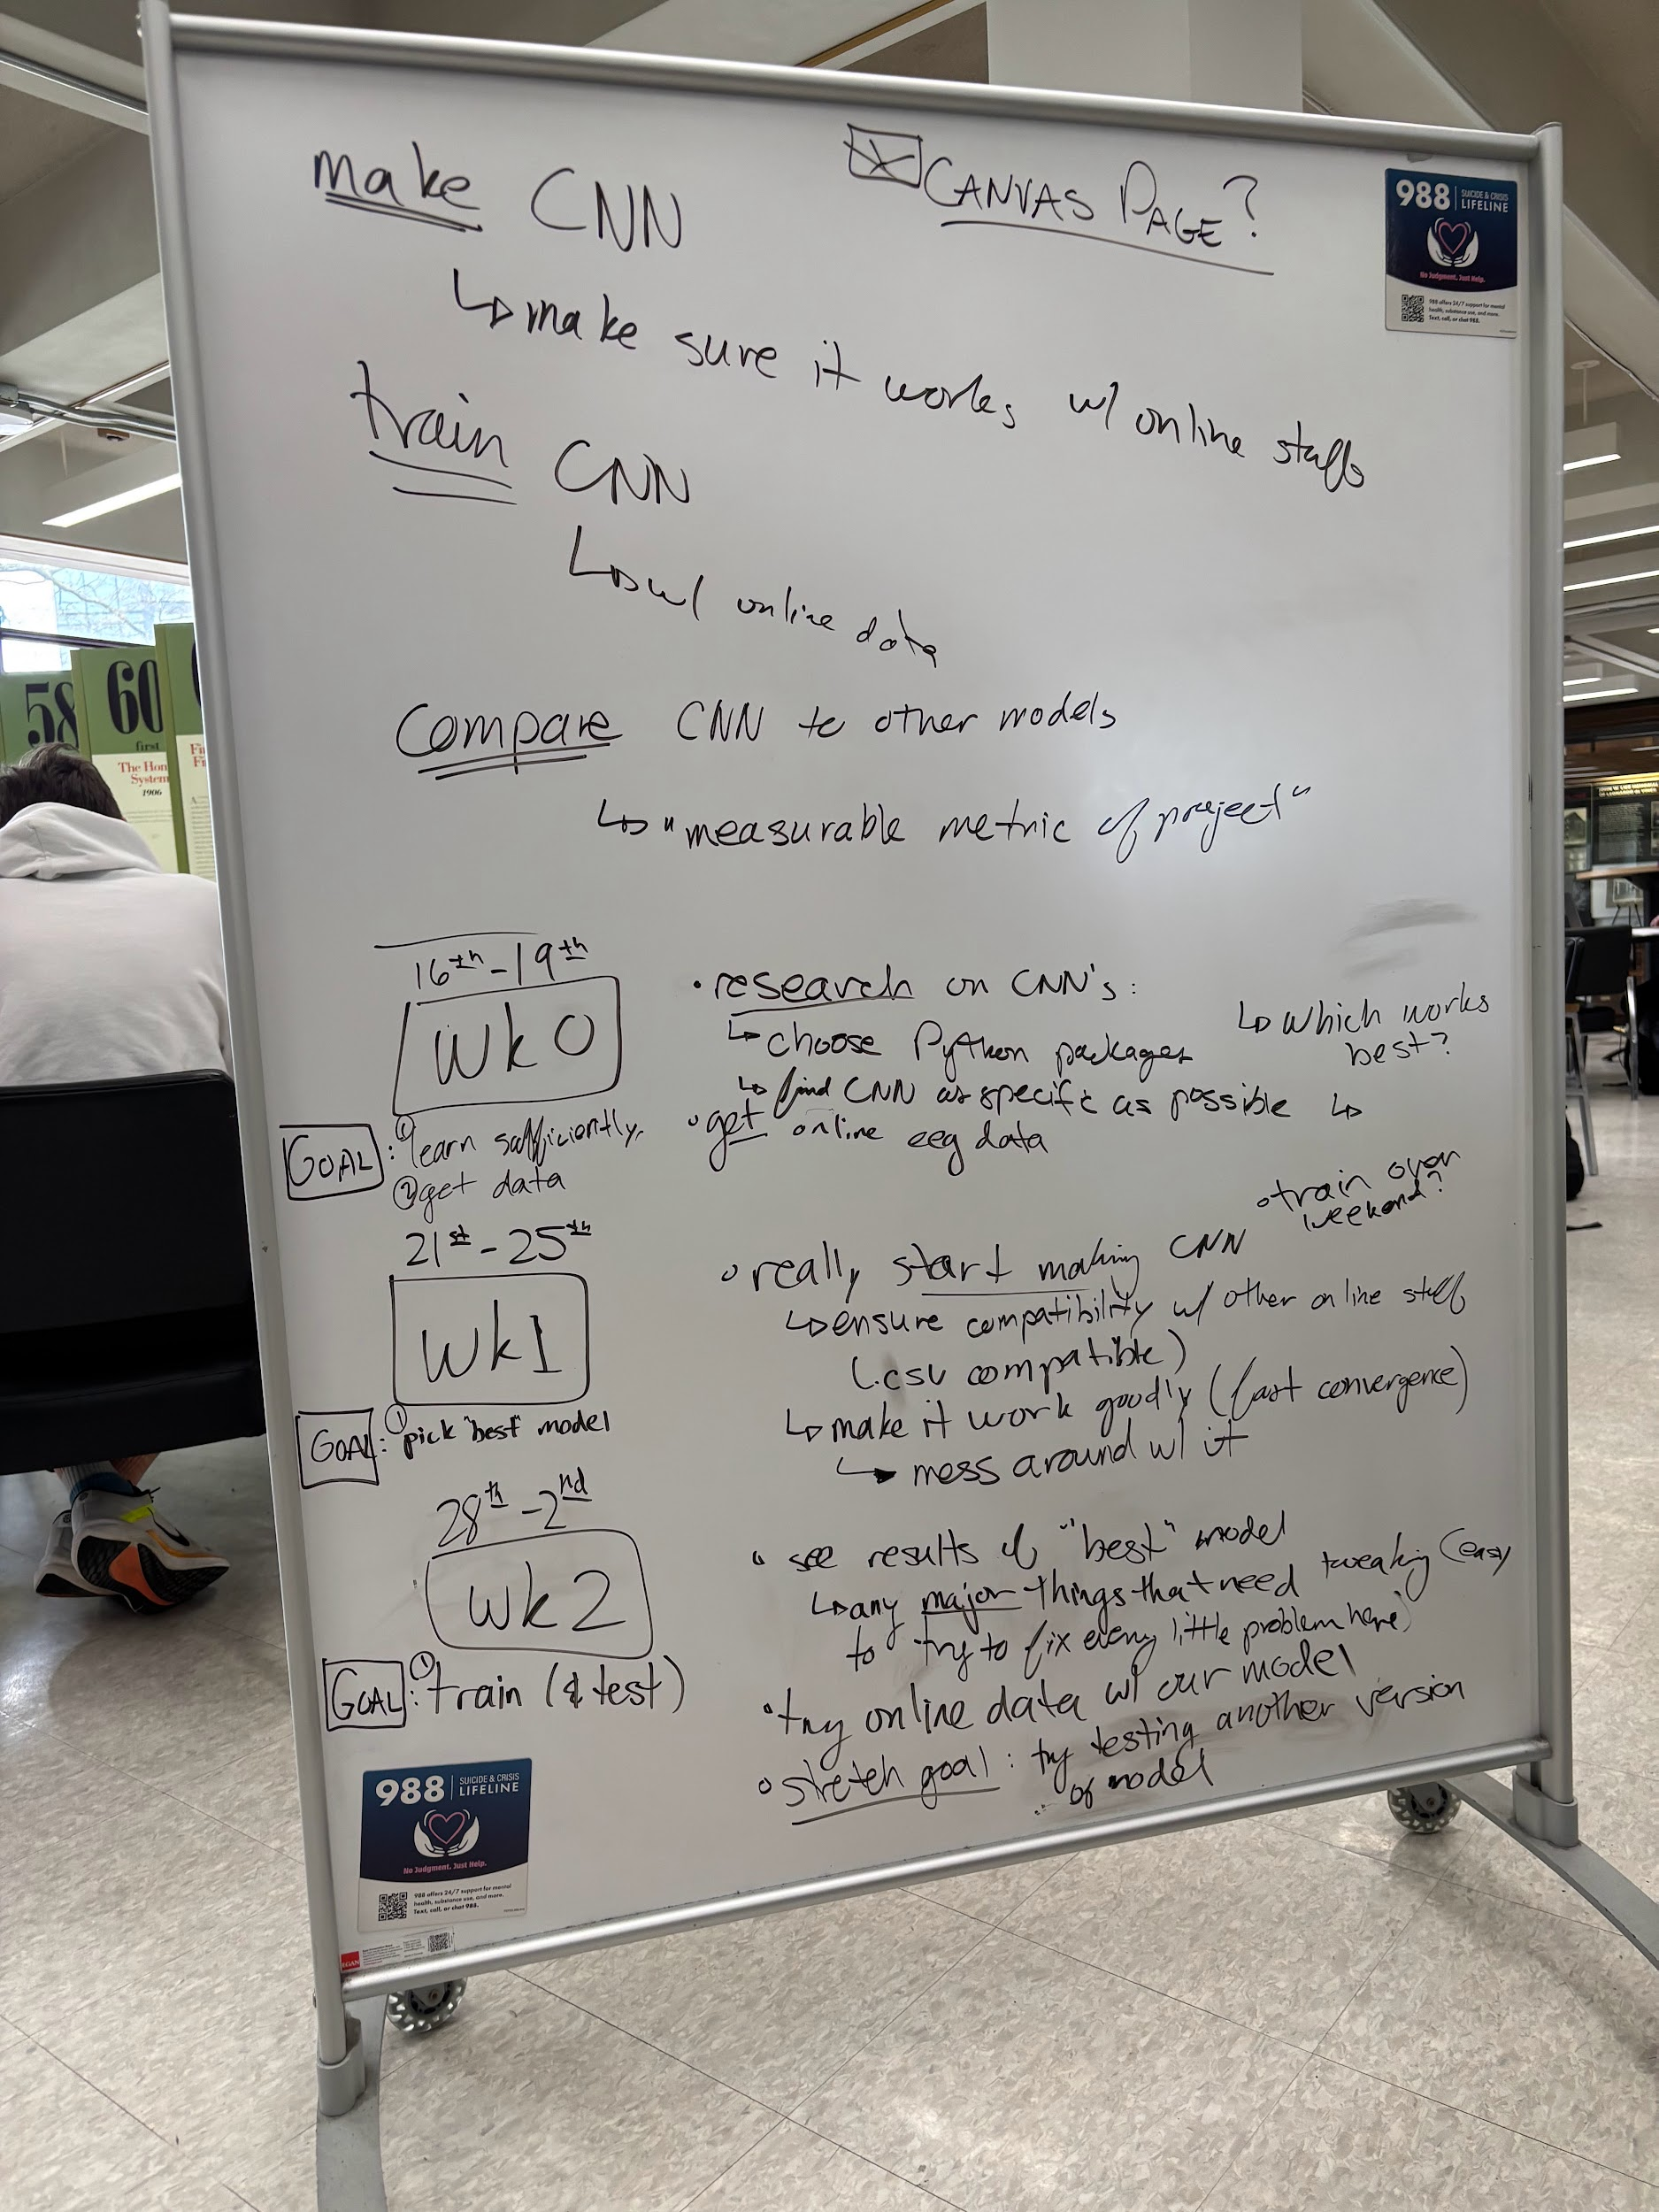 make CNN
CANVAS PAGE?
988 | SUICIDE & CRISIS LIFELINE
No Judgment. Just Help.
988 offers 24/7 support for mental
health, substance use, and more.
Text, call, or chat 988.
↳ make sure it works w/ online stuff
train CNN
↳ w/ online data
compare CNN to other models
↳ "measurable metric of project"
58
60
first
The Hon
System
1906
Fi
F
16th - 19th
wk 0
• research on CNN's:
↳ choose Python packages
↳ which works
best?
↳ find CNN as specific as possible ↳
• get online eeg data
GOAL: ① learn sufficiently,
② get data
21st - 25th
wk 1
• train over
weekend?
• really start making CNN
↳ ensure compatibility w/ other online stuff
(.csv compatible)
↳ make it work goodly (fast convergence)
↳ mess around w/ it
GOAL: ① pick "best" model
28th - 2nd
wk 2
• see results of "best" model
↳ any major things that need tweaking (easy
to try to fix every little problem here)
GOAL: ① train (& test)
• try online data w/ our model
• stretch goal: try testing another version
of model
988 | SUICIDE & CRISIS LIFELINE
No Judgment. Just Help.
988 offers 24/7 support for mental
health, substance use, and more.
Text, call, or chat 988.
EGAN